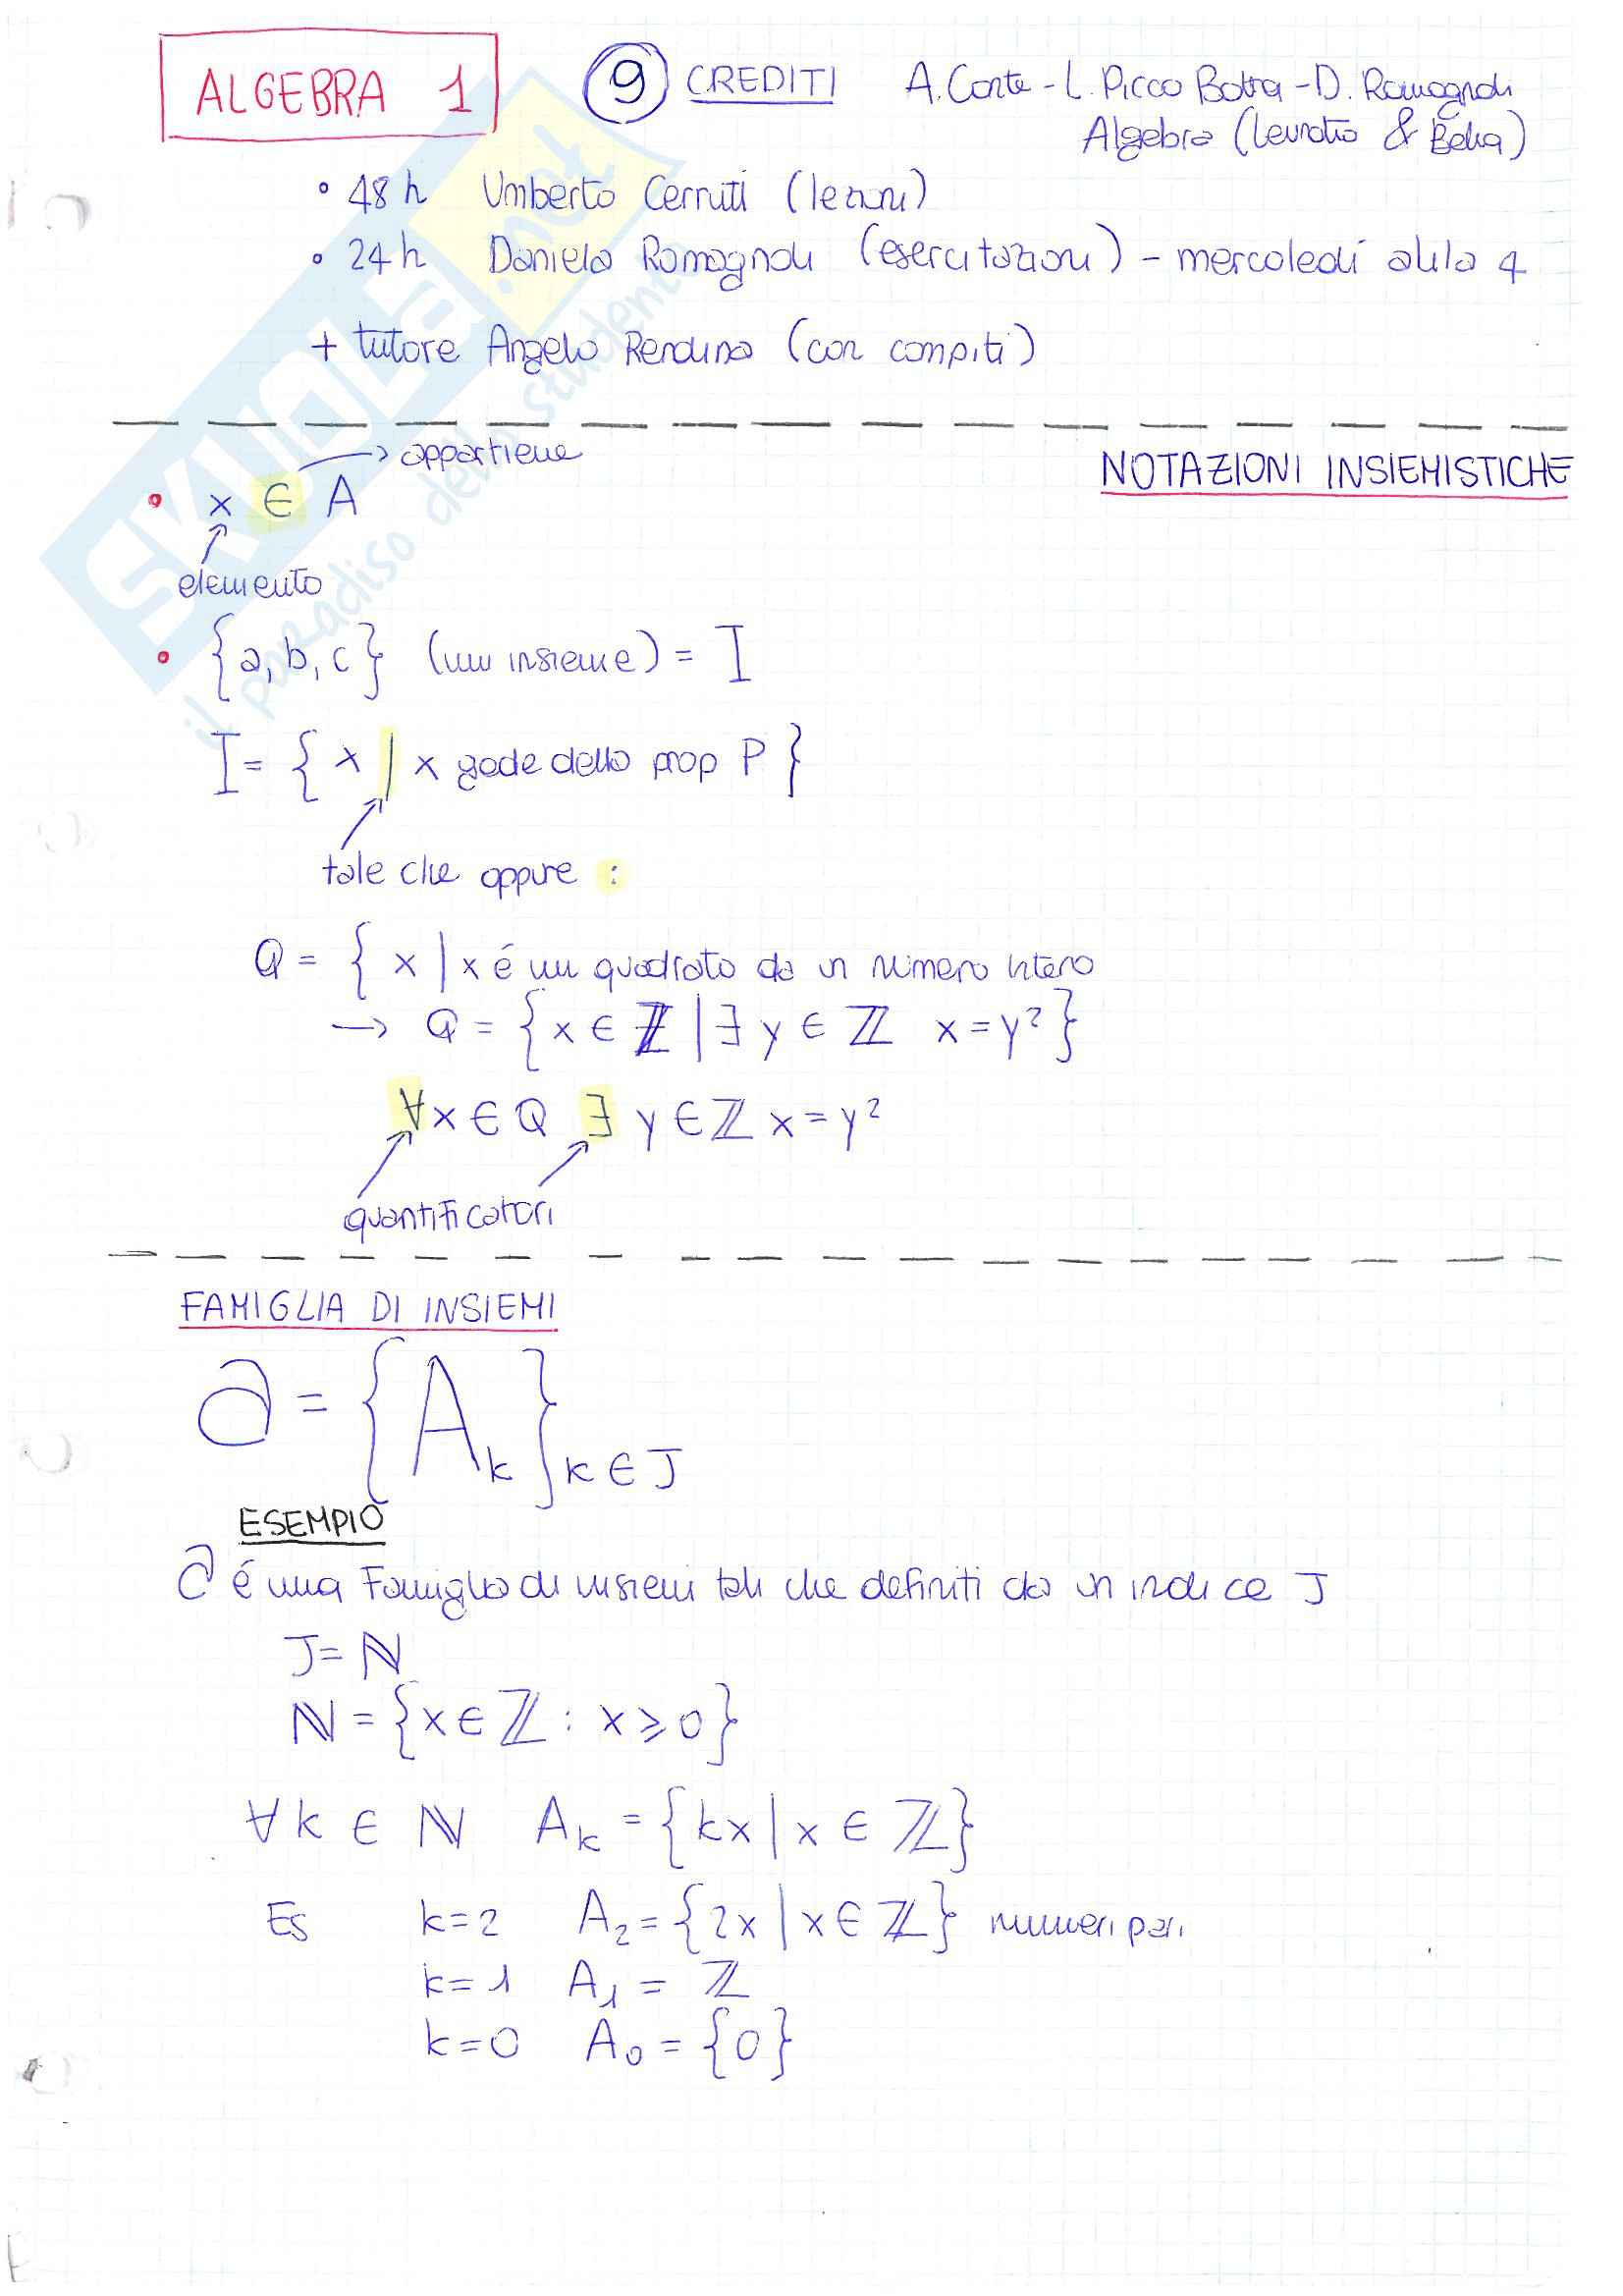 ALGEBRA 1
9 CREDITI A. Conte - L. Picco Botta - D. Romagnoli
Algebra (Levratto & Betta)
• 48 h Umberto Cerruti (lezioni)
• 24 h Daniela Romagnoli (esercitazioni) - mercoledí aula 4
+ tutore Angelo Rendina (con compiti)
SKUOLA.net
il paradiso dello studente
→ appartiene
NOTAZIONI INSIEMISTICHE
• x ∈ A
elemento
• {a, b, c} (un insieme) = I
I = { x | x gode della prop P }
tale che oppure :
Q = { x | x é un quadrato da un numero intero
→ Q = {x ∈ ℤ | ∃ y ∈ ℤ x = y²}
∀x ∈ Q ∃ y ∈ ℤ x = y²
quantificatori
FAMIGLIA DI INSIEMI
∂ = {A_k}_{k ∈ J}
ESEMPIO
∂ é una Famiglia di insiemi tali che definiti da un indice J
J = ℕ
ℕ = {x ∈ ℤ : x ⩾ 0}
∀ k ∈ ℕ A_k = {kx | x ∈ ℤ}
Es k = 2 A₂ = {2x | x ∈ ℤ} numeri pari
k = 1 A₁ = ℤ
k = 0 A₀ = {0}